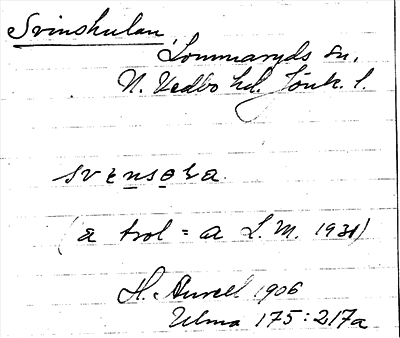 Svinshulan,
Lommaryds sn,
N. Vedbo hd. Jönk. l.
(a trol = a L.M. 1931)
H. Aurell 1906
Ulma 175:217a